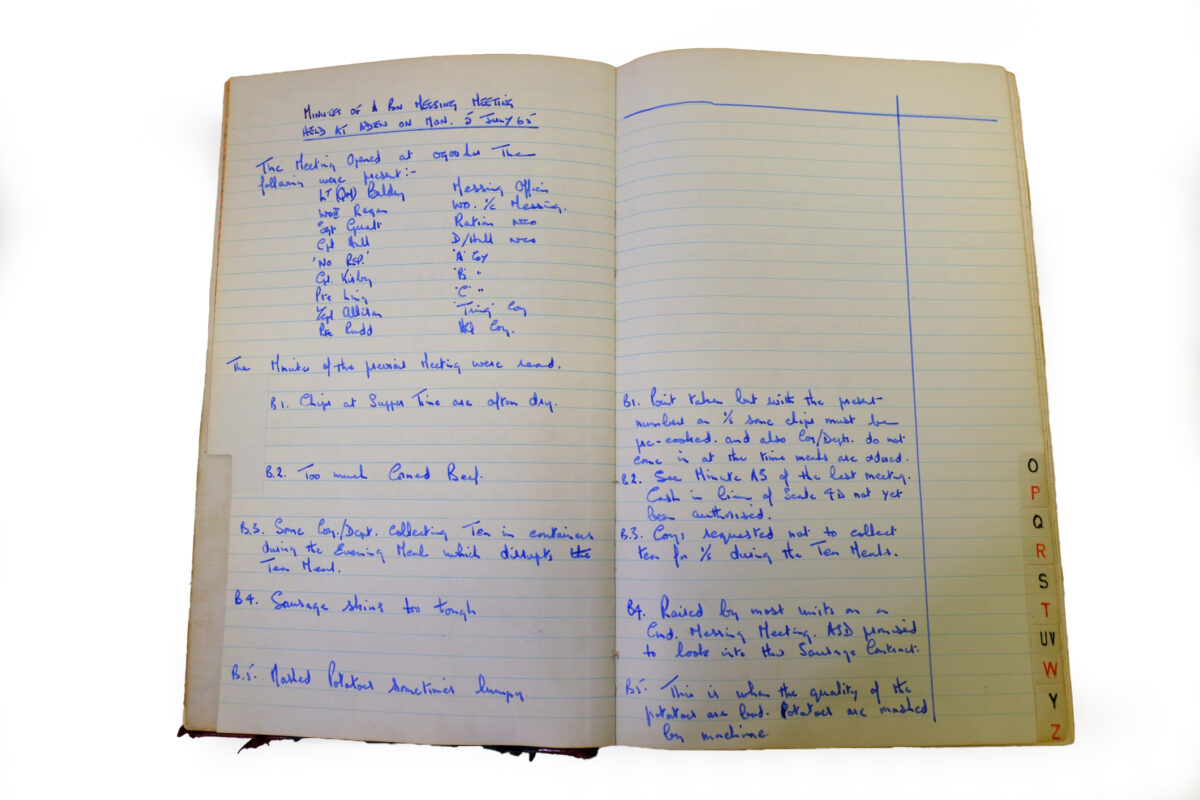 MINUTES OF A BN MESSING MEETING
HELD AT ADEN ON MON. 5 JULY 65
The Meeting Opened at 0900 hrs The
following were present:-
Lt (QM) Baldry Messing Officer
WOII Regan WO. i/c Messing.
Sgt Ration NCO
Cpl Hull D/Hall NCO
'NO REP.' 'A' Coy
Cpl. Kirby 'B' "
Pte Ling 'C' "
L/Cpl Allison 'Trng' Coy
Pte Rudd HQ Coy.
The Minutes of the previous Meeting were read.
B1. Chips at Supper Time are often dry.
B.2. Too much Corned Beef.
B.3. Some Coy./Dept. collecting Tea in containers
during the Evening Meal which disrupts the
Tea Meal.
B4. Sausage skins too tough
B.5. Mashed Potatoes sometimes lumpy
B1. Point taken but with the present
numbers on i/s some chips must be
pre-cooked. and also Coy/Dept. do not
come in at the time meals are
B2. See Minute A3 of the last meeting.
Cash in lieu of Scale 4D not yet
been authorised.
B.3. Coys requested not to collect
tea for i/s during the Tea Meals.
B4. Raised by most units on a
Cmd. Messing Meeting. ASD promised
to look into this Sausage Contract.
B5. This is when the quality of the
potatoes are bad. Potatoes are mashed
by machine.
O
P
Q
R
S
T
UV
W
Y
Z